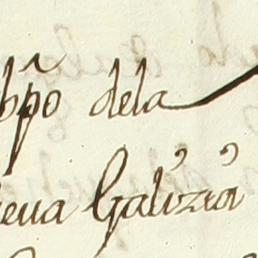 bpo dela
ueua Galizia